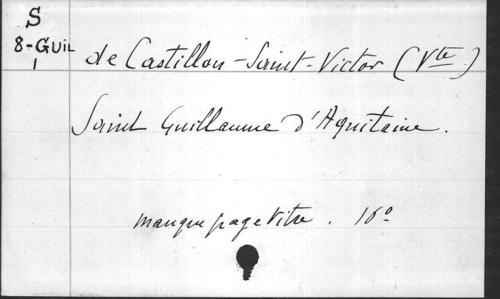 S
8-GUIL
1
de Castillon-Saint-Victor (Vte.)
Saint Guillaume d'Aquitaine.
manque page titre. 16º